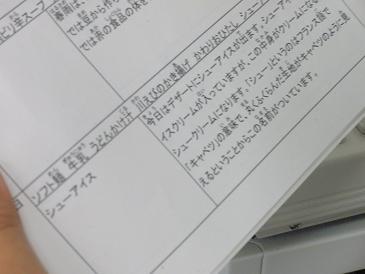 ピリ辛スープ
では豆から作ら
では茶の食品の体を
ソフト麺 牛乳 うどんかけ汁
シューアイス
えびのかき揚げ かわりおひたし シューアイス
今日はデザートにシューアイスが出ます。シューアイ
イスクリームが入っていますが、この中身がクリームになる
シュークリームになります。「シュー」というのはフランス語で
「キャベツ」の意味で、丸くふくらんだ生地がキャベツのように見
えるということからこの名前がついています。